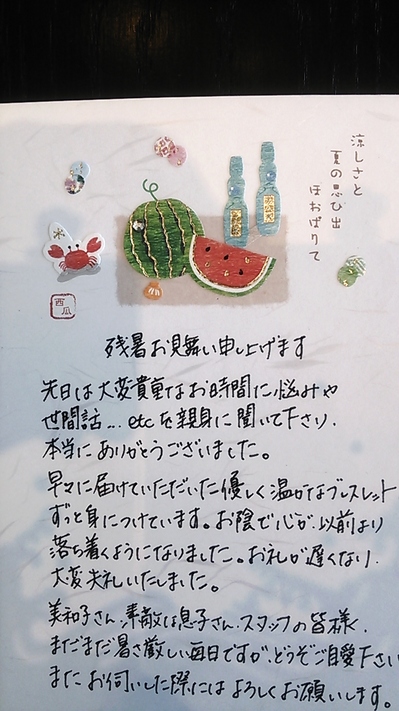 涼しさと
夏の思ひ出
ほおばりて
氷
西瓜
残暑お見舞い申し上げます
先日は大変貴重なお時間に悩みや
世間話...etcを親身に聞いて下さり、
本当にありがとうございました。
早々に届けていただいた優しく温かなブレスレット
ずっと身につけています。お陰で心が以前より
落ち着くようになりました。お礼が遅くなり、
大変失礼いたしました。
美和子さん、素敵な息子さん、スタッフの皆様、
まだまだ暑さ厳しい毎日ですが、どうぞご自愛下さい
またお伺いした際にはよろしくお願いします。